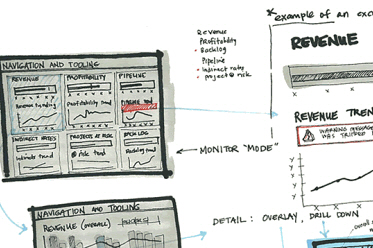 NAVIGATION AND TOOLING
REVENUE
PROFITABILITY
PIPELINE
Revenue trending
Profitability trend
PIPELINE
INDIRECT RATES
PROJECTS AT RISK
BACKLOG
Indirects trend
@ risk trend
Backlog trend
Revenue
Profitability
• Backlog
Pipeline
• Indirect rates
• project @ risk
* example of an exc
REVENUE
x x x
REVENUE TREN
WARNING MESSAGE
WAS TRIPPED
Y
Y
Y
Y
x x x
← MONITOR "MODE"
DETAIL: OVERLAY, DRILL DOWN
NAVIGATION AND TOOLING
REVENUE (OVERALL)
overall